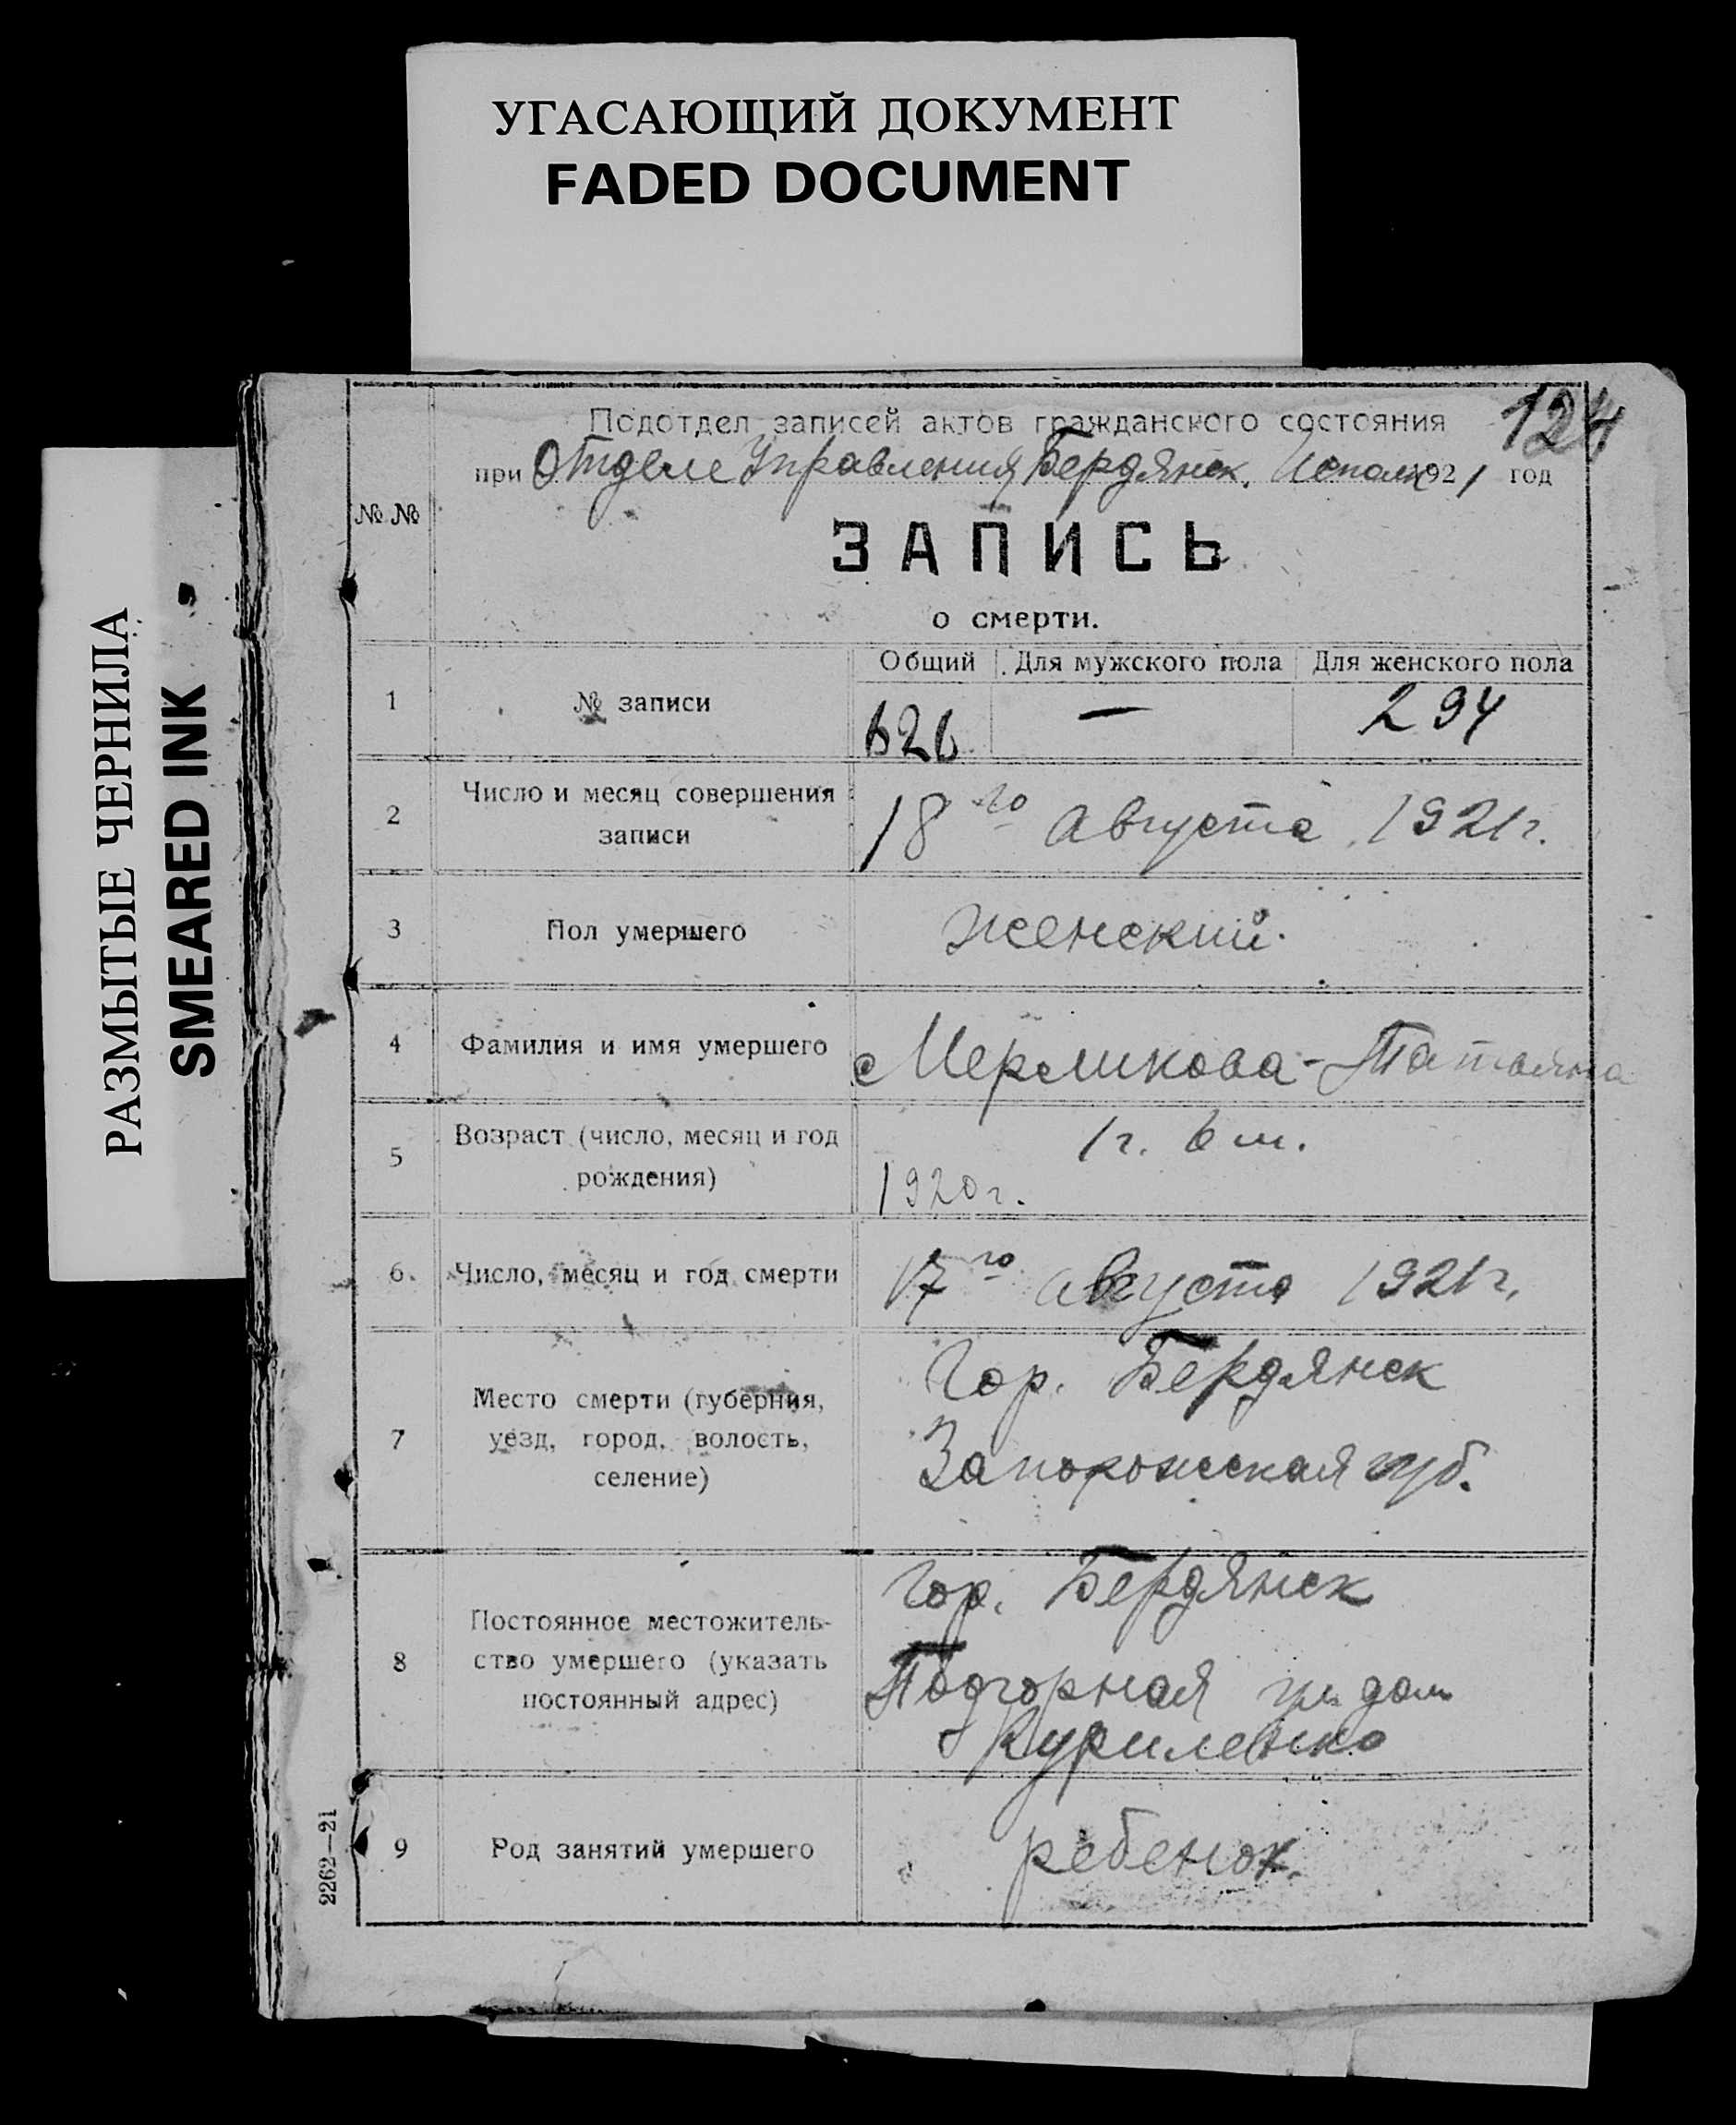 УГАСАЮЩИЙ ДОКУМЕНТ
FADED DOCUMENT
РАЗМЫТЫЕ ЧЕРНИЛА
SMEARED INK
124
Подотдел записей актов гражданского состояния
при Отделе Управления Бердянск. Исполк 1921 год
№ №
ЗАПИСЬ
о смерти.
Общий Для мужского пола Для женского пола
1 № записи 626 — 294
2 Число и месяц совершения
записи
18го Августа 1921г.
3 Пол умершего женский.
4 Фамилия и имя умершего Мерликова - Татьяна
5 Возраст (число, месяц и год
рождения)
1г. 6 м.
1920г.
6. Число, месяц и год смерти 17го августа 1921г.
7 Место смерти (губерния,
уезд, город, волость,
селение)
Гор. Бердянск
Запорожская губ.
8 Постоянное местожитель-
ство умершего (указать
постоянный адрес)
Гор. Бердянск
Подгорная ул. дом
Куриленко
9 Род занятий умершего ребенок.
2262—21